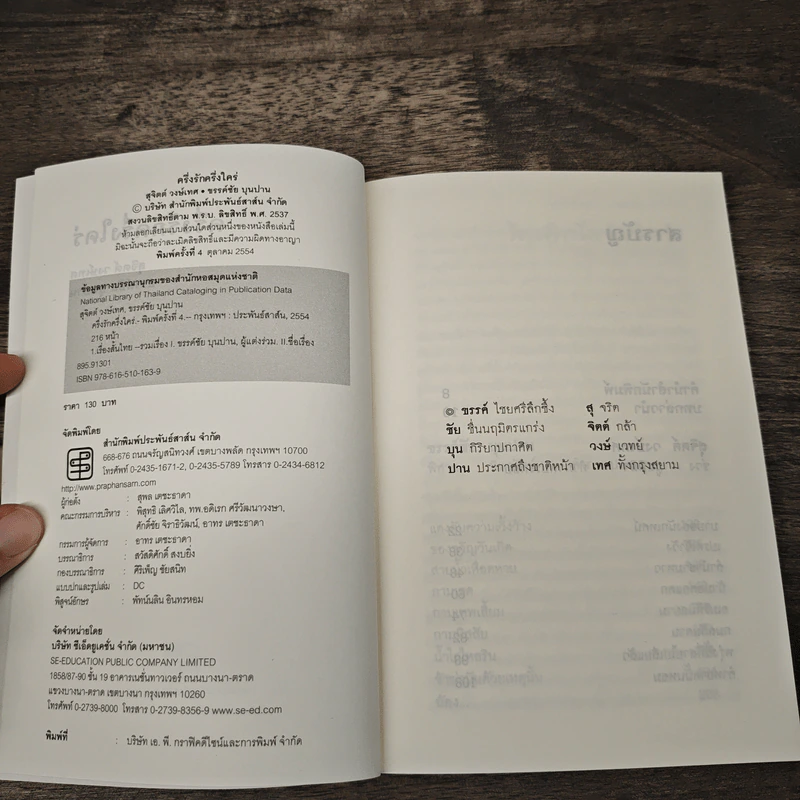 ครึ่งรักครึ่งใคร่
สุจิตต์ วงษ์เทศ • ขรรค์ชัย บุนปาน
© บริษัท สำนักพิมพ์ประพันธ์สาส์น จำกัด
สงวนลิขสิทธิ์ตาม พ.ร.บ. ลิขสิทธิ์ พ.ศ. 2537
ห้ามลอกเลียนแบบส่วนใดส่วนหนึ่งของหนังสือเล่มนี้
มิฉะนั้นจะถือว่าละเมิดลิขสิทธิ์และมีความผิดทางอาญา
พิมพ์ครั้งที่ 4 ตุลาคม 2554
ข้อมูลทางบรรณานุกรมของสำนักหอสมุดแห่งชาติ
National Library of Thailand Cataloging in Publication Data
สุจิตต์ วงษ์เทศ, ขรรค์ชัย บุนปาน
ครึ่งรักครึ่งใคร่.- พิมพ์ครั้งที่ 4.-- กรุงเทพฯ : ประพันธ์สาส์น, 2554
216 หน้า
1.เรื่องสั้นไทย --รวมเรื่อง I. ขรรค์ชัย บุนปาน, ผู้แต่งร่วม. II.ชื่อเรื่อง
895.91301
ISBN 978-616-510-163-9
ราคา 130 บาท
จัดพิมพ์โดย
สำนักพิมพ์ประพันธ์สาส์น จำกัด
668-676 ถนนจรัญสนิทวงศ์ เขตบางพลัด กรุงเทพฯ 10700
โทรศัพท์ 0-2435-1671-2, 0-2435-5789 โทรสาร 0-2434-6812
http://www.praphansarn.com
ผู้ก่อตั้ง : สุพล เตชะธาดา
คณะกรรมการบริหาร : พิสุทธิ์ เลิศวิไล, ทพ.อดิเรก ศรีวัฒนาวงษา,
ศักดิ์ชัย จิราธิวัฒน์, อาทร เตชะธาดา
กรรมการผู้จัดการ : อาทร เตชะธาดา
บรรณาธิการ : สวัสดิศักดิ์ สงบยิ่ง
กองบรรณาธิการ : ศิริเพ็ญ ชัยสนิท
แบบปกและรูปเล่ม : DC
พิสูจน์อักษร : พัทน์นลิน อินทรหอม
จัดจำหน่ายโดย
บริษัท ซีเอ็ดยูเคชั่น จำกัด (มหาชน)
SE-EDUCATION PUBLIC COMPANY LIMITED
1858/87-90 ชั้น 19 อาคารเนชั่นทาวเวอร์ ถนนบางนา-ตราด
แขวงบางนา-ตราด เขตบางนา กรุงเทพฯ 10260
โทรศัพท์ 0-2739-8000 โทรสาร 0-2739-8356-9 www.se-ed.com
พิมพ์ที่ : บริษัท เอ. พี. กราฟิคดีไซน์และการพิมพ์ จำกัด
ขรรค์ ไชยศรีลึกซึ้ง สุ จริต
ชัย ชื่นนฤมิตรแกร่ง จิตต์ กล้า
บุน กิริยาปกาศิต วงษ์ เวทย์
ปาน ประกาศถึงชาติหน้า เทศ ทั้งกรุงสยาม